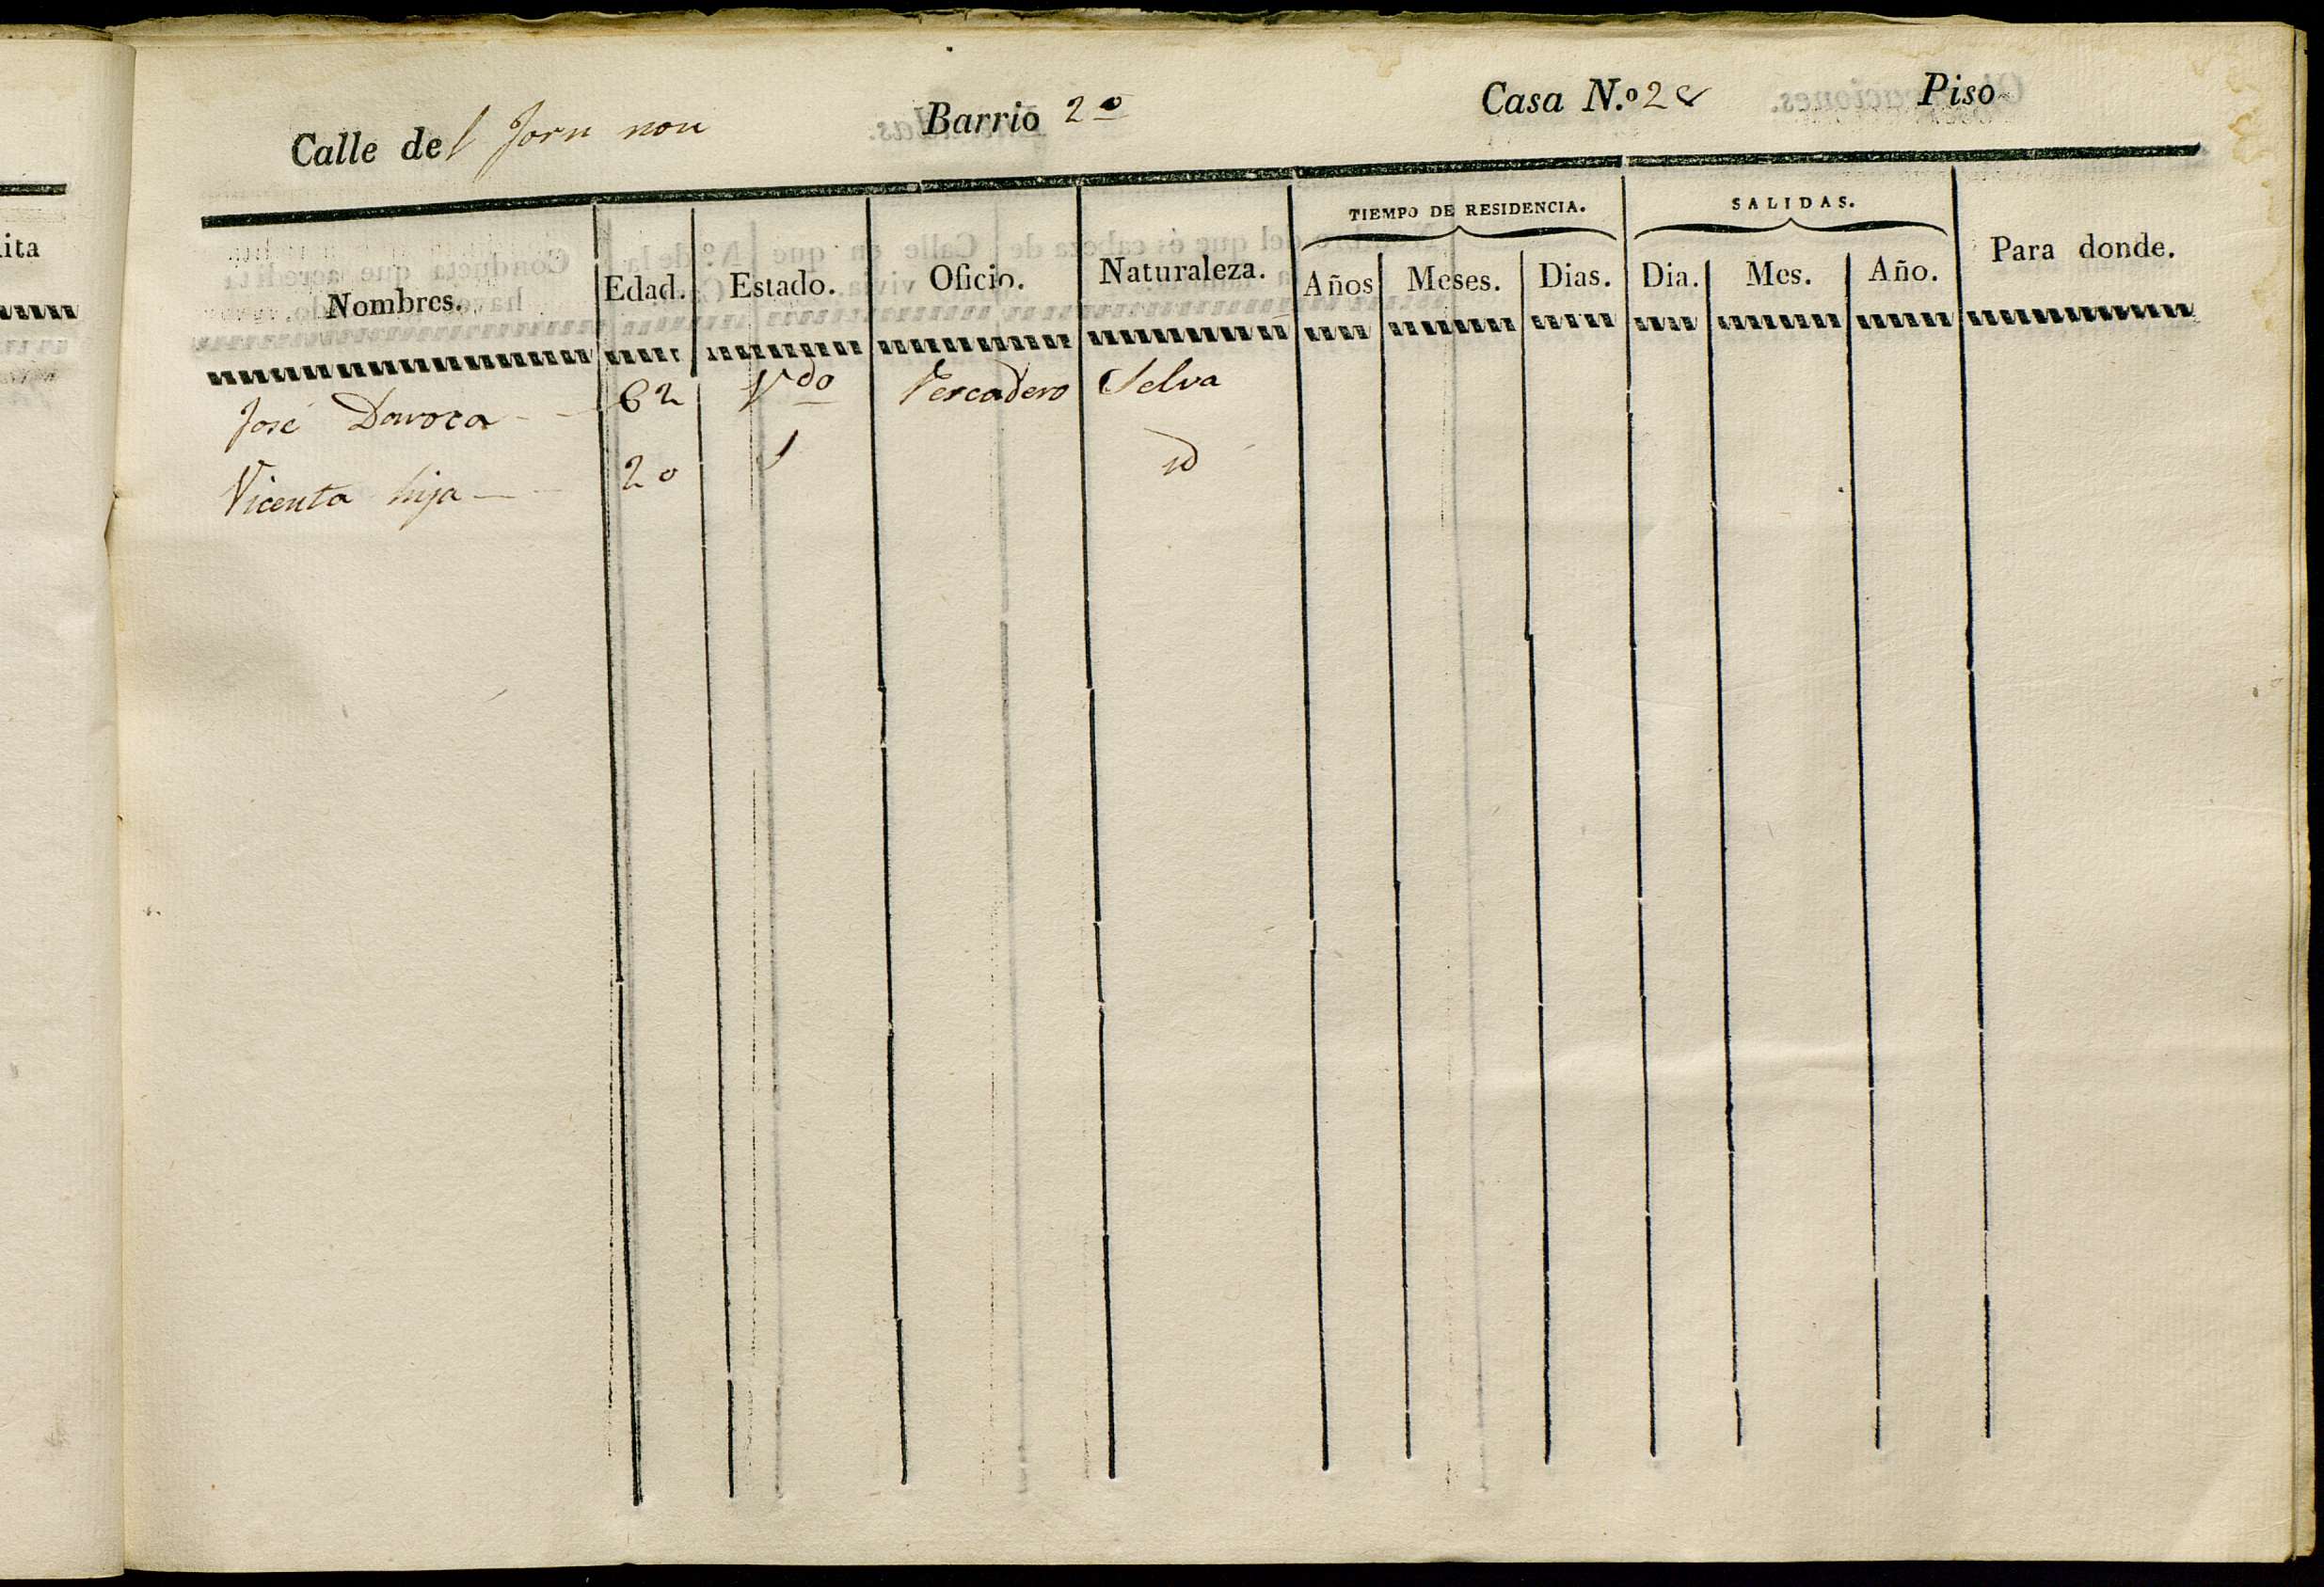 ita
Calle del Forn nou Barrio 2º Casa N.º 28 Piso
TIEMPO DE RESIDENCIA. SALIDAS.
Nombres. Edad. Estado. Oficio. Naturaleza. Años Meses. Dias. Dia. Mes. Año. Para donde.
José Daroca 62 Vdo Pescadero Selva
Vicenta hija 20 S id